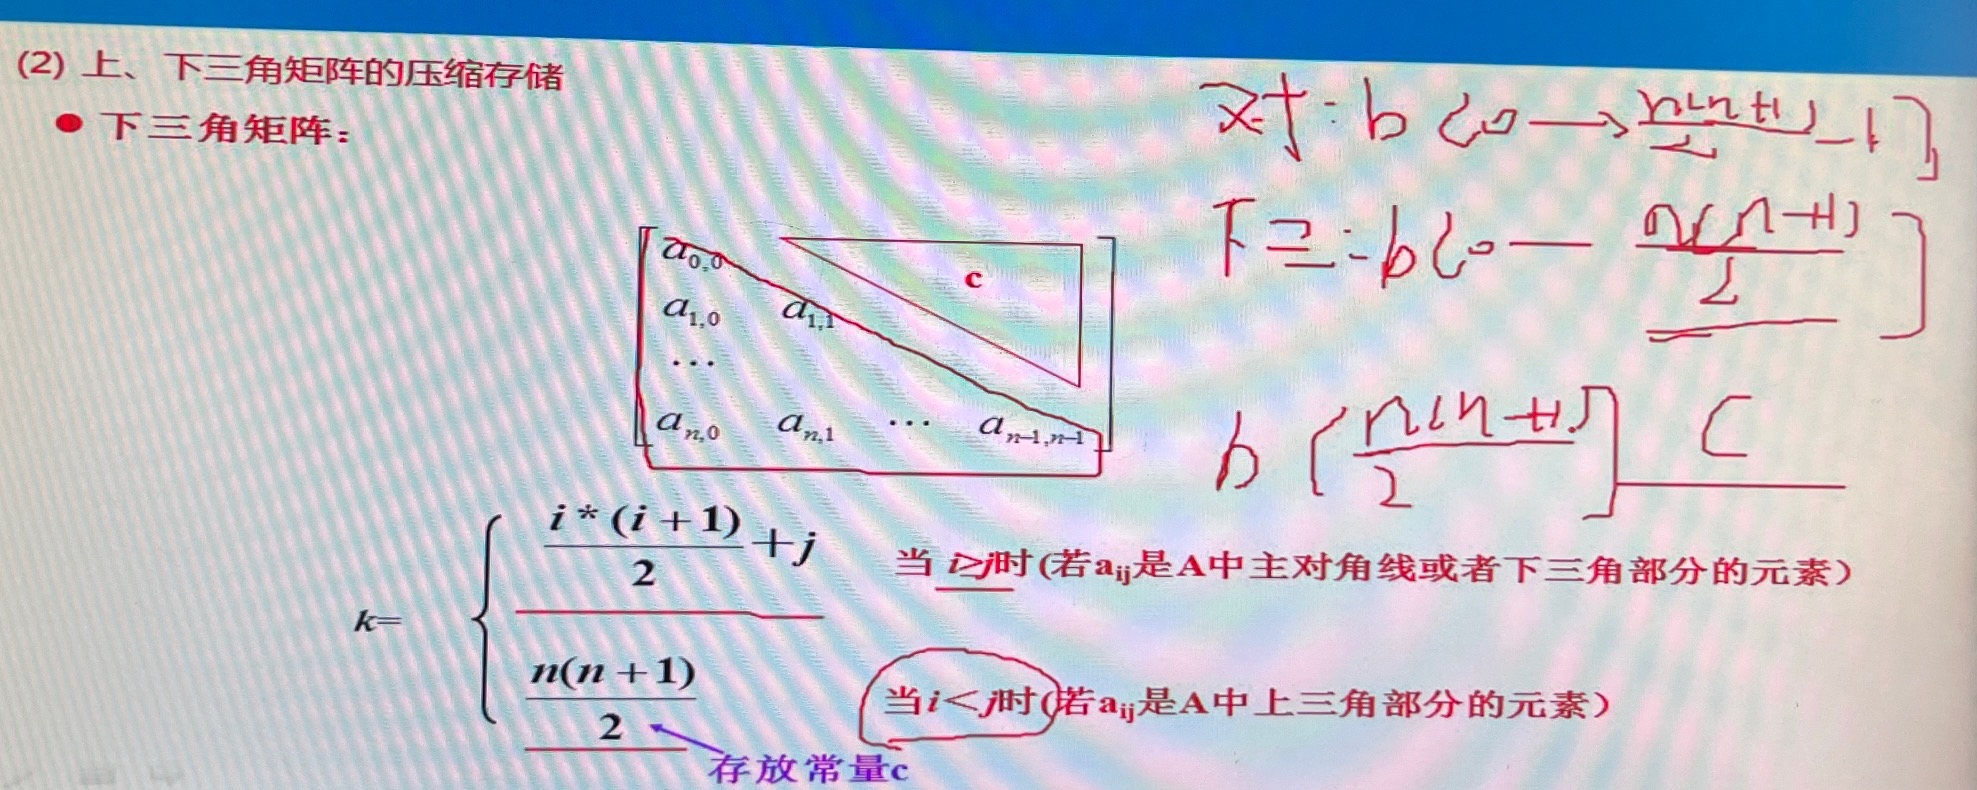 (2) 上、下三角矩阵的压缩存储
● 下三角矩阵:
对: b [0 → n(n+1)/2 - 1],
下三: b [0 — n(n+1)/2]
b [n(n+1)/2] C
a0,0 c
a1,0 a1,1
...
an,0 an,1 ... an-1,n-1
k= { i * (i + 1)/2 + j 当 i≥j时(若aij是A中主对角线或者下三角部分的元素)
n(n + 1)/2 当i<j时(若aij是A中上三角部分的元素)
存放常量c